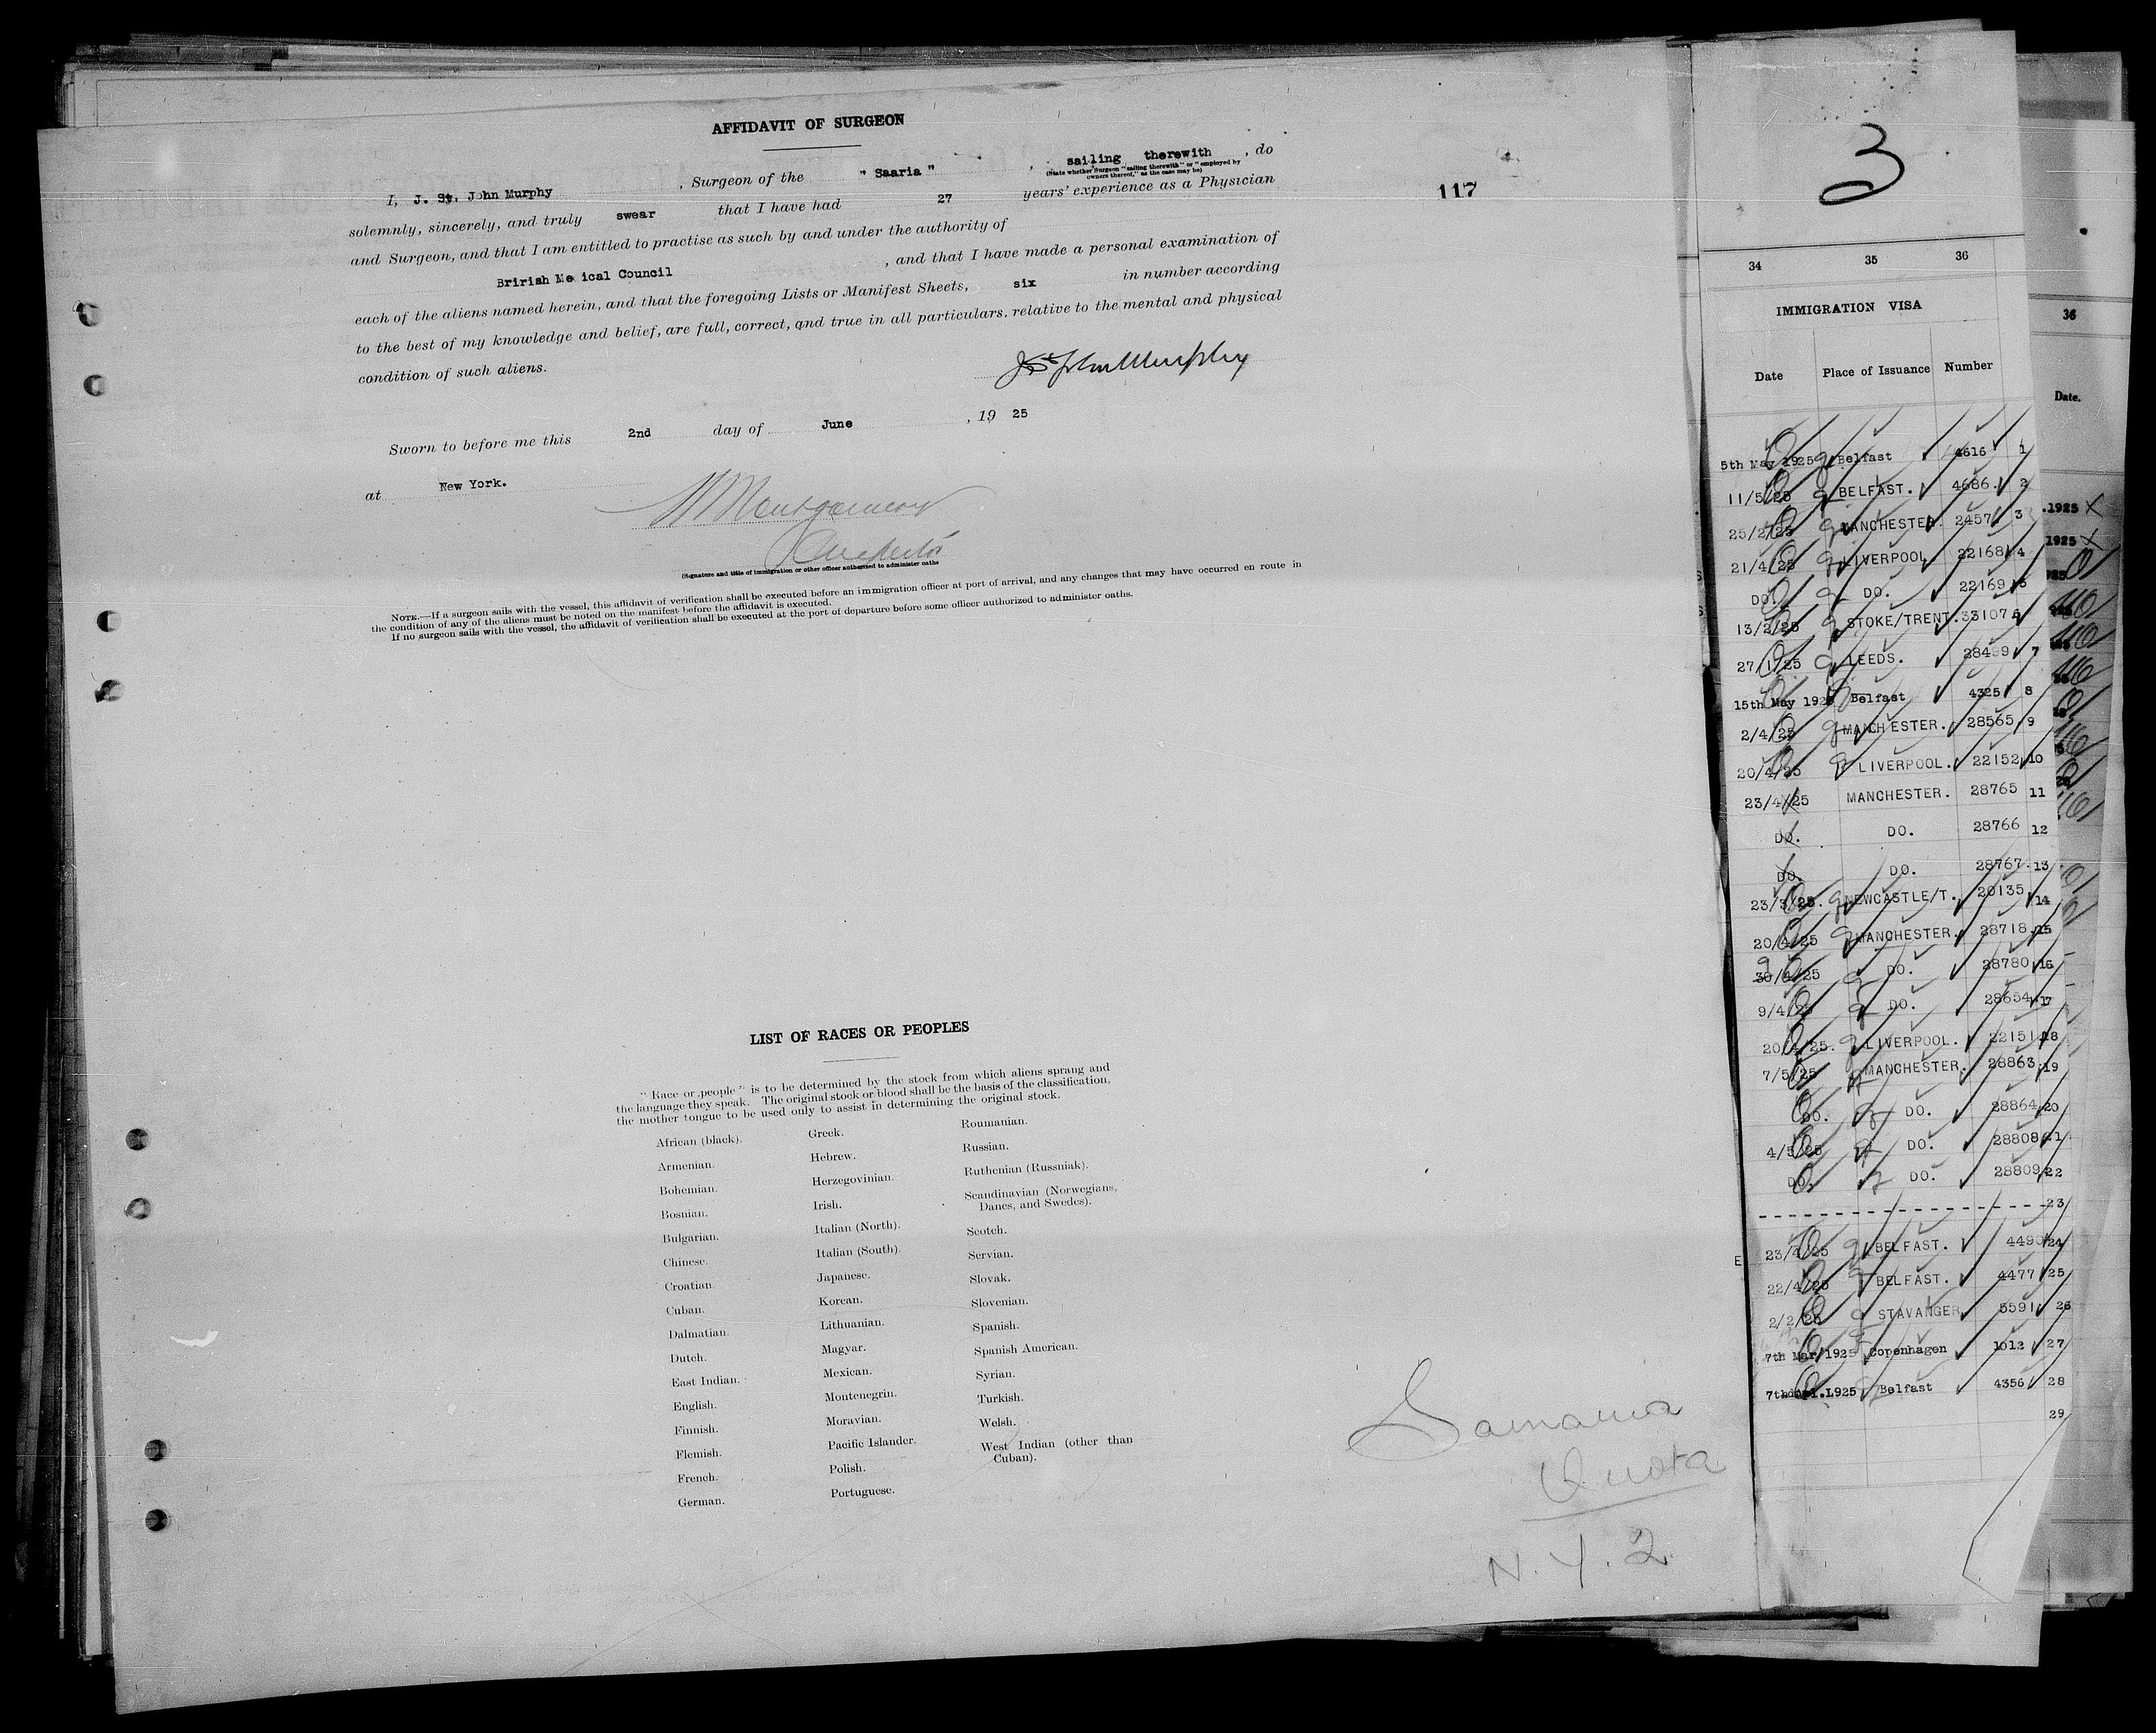 AFFIDAVIT OF SURGEON
I, J. St. John Murphy , Surgeon of the "Saaria" , sailing therewith , do
(State whether Surgeon "sailing therewith" or "employed by
owners thereof," as the case may be)
solemnly, sincerely, and truly swear that I have had 27 years' experience as a Physician
and Surgeon, and that I am entitled to practise as such by and under the authority of
Brirish Me ical Council , and that I have made a personal examination of
each of the aliens named herein, and that the foregoing Lists or Manifest Sheets, six in number according
to the best of my knowledge and belief, are full, correct, and true in all particulars, relative to the mental and physical
condition of such aliens.
J St John Murphy
Sworn to before me this 2nd day of June , 19 25
at New York.
Montgomery
Inspector
(Signature and title of immigration or other officer authorized to administer oaths
NOTE.—If a surgeon sails with the vessel, this affidavit of verification shall be executed before an immigration officer at port of arrival, and any changes that may have occurred en route in
the condition of any of the aliens must be noted on the manifest before the affidavit is executed.
If no surgeon sails with the vessel, the affidavit of verification shall be executed at the port of departure before some officer authorized to administer oaths.
117
LIST OF RACES OR PEOPLES
"Race or people" is to be determined by the stock from which aliens sprang and
the language they speak. The original stock or blood shall be the basis of the classification,
the mother tongue to be used only to assist in determining the original stock.
African (black).
Armenian.
Bohemian.
Bosnian.
Bulgarian.
Chinese.
Croatian.
Cuban.
Dalmatian.
Dutch.
East Indian.
English.
Finnish.
Flemish.
French.
German.
Greek.
Hebrew.
Herzegovinian.
Irish.
Italian (North).
Italian (South).
Japanese.
Korean.
Lithuanian.
Magyar.
Mexican.
Montenegrin.
Moravian.
Pacific Islander.
Polish.
Portuguese.
Roumanian.
Russian.
Ruthenian (Russniak).
Scandinavian (Norwegians,
Danes, and Swedes).
Scotch.
Servian.
Slovak.
Slovenian.
Spanish.
Spanish American.
Syrian.
Turkish.
Welsh.
West Indian (other than
Cuban).
Samaria
Quota
N. Y. 2
3
34 35 36
IMMIGRATION VISA
Date Place of Issuance Number
5th May 1925 Belfast 4616 1
11/5/25 BELFAST. 4686. 2
25/2/25 MANCHESTER. 2457 3
21/4/25 LIVERPOOL 22168 4
DO. DO. 22169 5
13/2/25 STOKE/TRENT. 33107 6
27/1/25 LEEDS. 28499 7
15th May 1925 Belfast 4325 8
2/4/25 MANCHESTER. 28565 9
20/4/25 LIVERPOOL. 22152 10
23/4/25 MANCHESTER. 28765 11
DO. DO. 28766 12
DO. DO. 28767. 13
23/3/25. NEWCASTLE/T. 20135 14
20/4/25 MANCHESTER. 28718 15
30/4/25 DO. 28780 16
9/4/25 DO. 28654 17
20/4/25. LIVERPOOL. 22151 18
7/5/25 MANCHESTER. 28863 19
DO. DO. 28864 20
4/5/25 DO. 28808 21
DO. DO. 28809 22
23
23/4/25 BELFAST. 4490 24
22/4/25 BELFAST. 4477 25
2/2/25 STAVANGER 5591 26
7th Mar 1925 Copenhagen 1012 27
7th Apl. 1925 Belfast 4356 28
29
36
Date.
.1925
1925